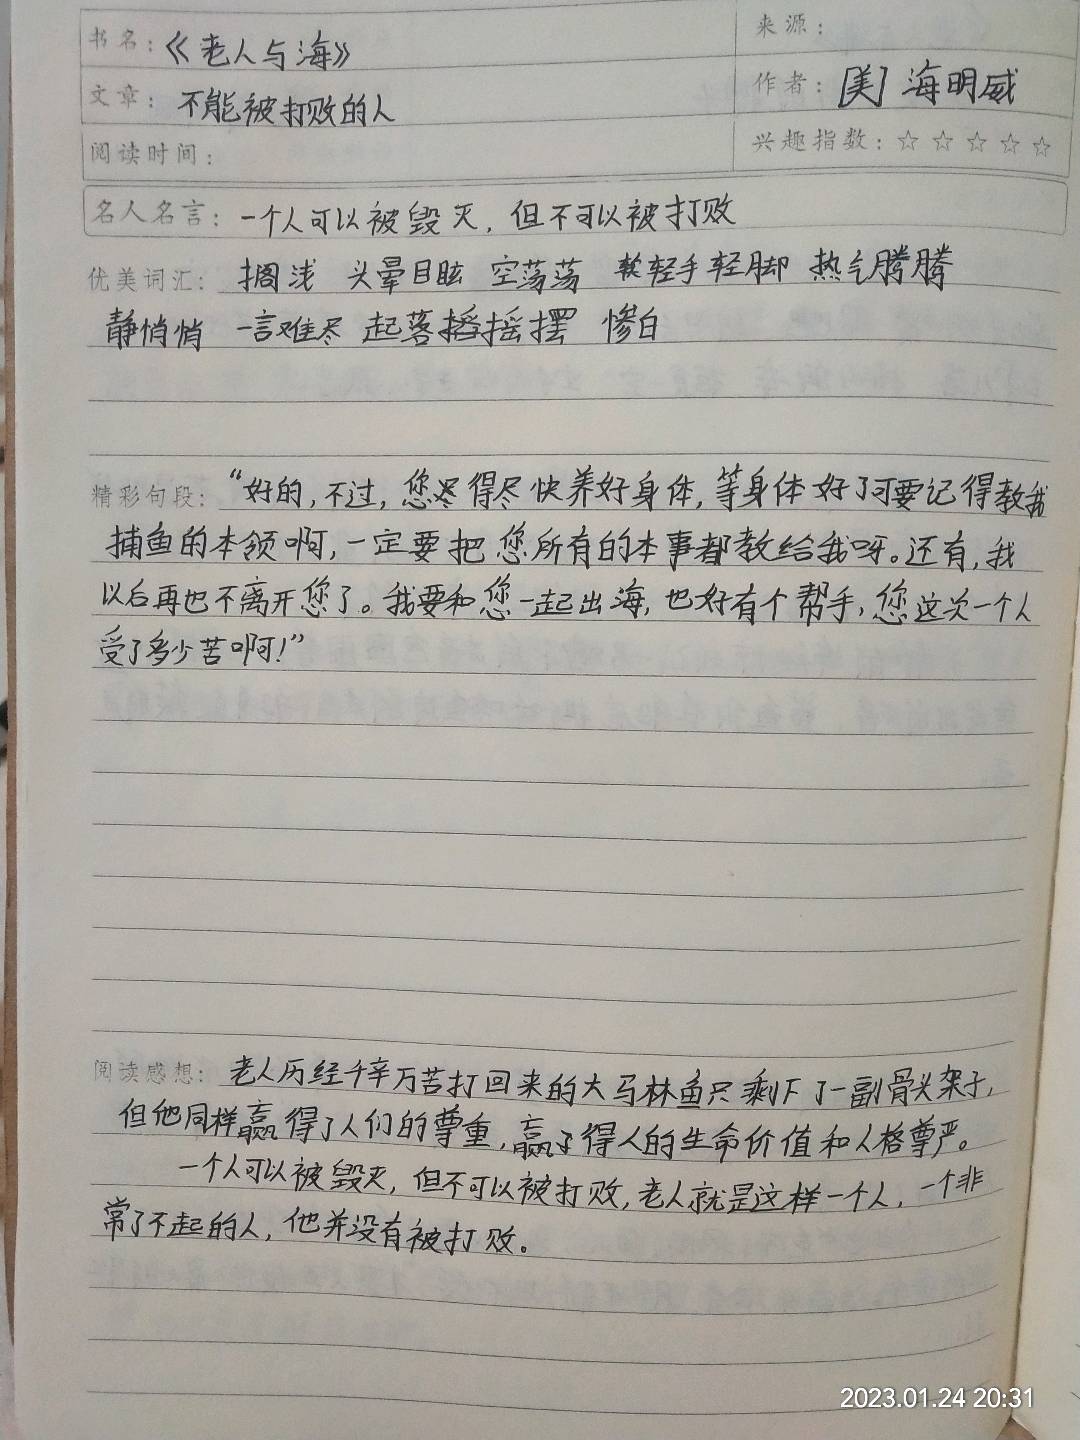 书名：《老人与海》
来源：
文章：不能被打败的人
作者：[美] 海明威
阅读时间：
兴趣指数：☆ ☆ ☆ ☆ ☆
名人名言：一个人可以被毁灭，但不可以被打败
优美词汇：搁浅 头晕目眩 空荡荡 轻手轻脚 热气腾腾
静悄悄 一言难尽 起落摇摆 惨白
精彩句段：“好的，不过，您得尽快养好身体，等身体好了可要记得教我
捕鱼的本领啊，一定要把您所有的本事都教给我呀。还有，我
以后再也不离开您了。我要和您一起出海，也好有个帮手，您这次一个人
受了多少苦啊！”
阅读感想：老人历经千辛万苦打回来的大马林鱼只剩下了一副骨头架子，
但他同样赢得了人们的尊重，赢了得人的生命价值和人格尊严。
一个人可以被毁灭，但不可以被打败，老人就是这样一个人，一个非
常了不起的人，他并没有被打败。
2023.01.24 20:31